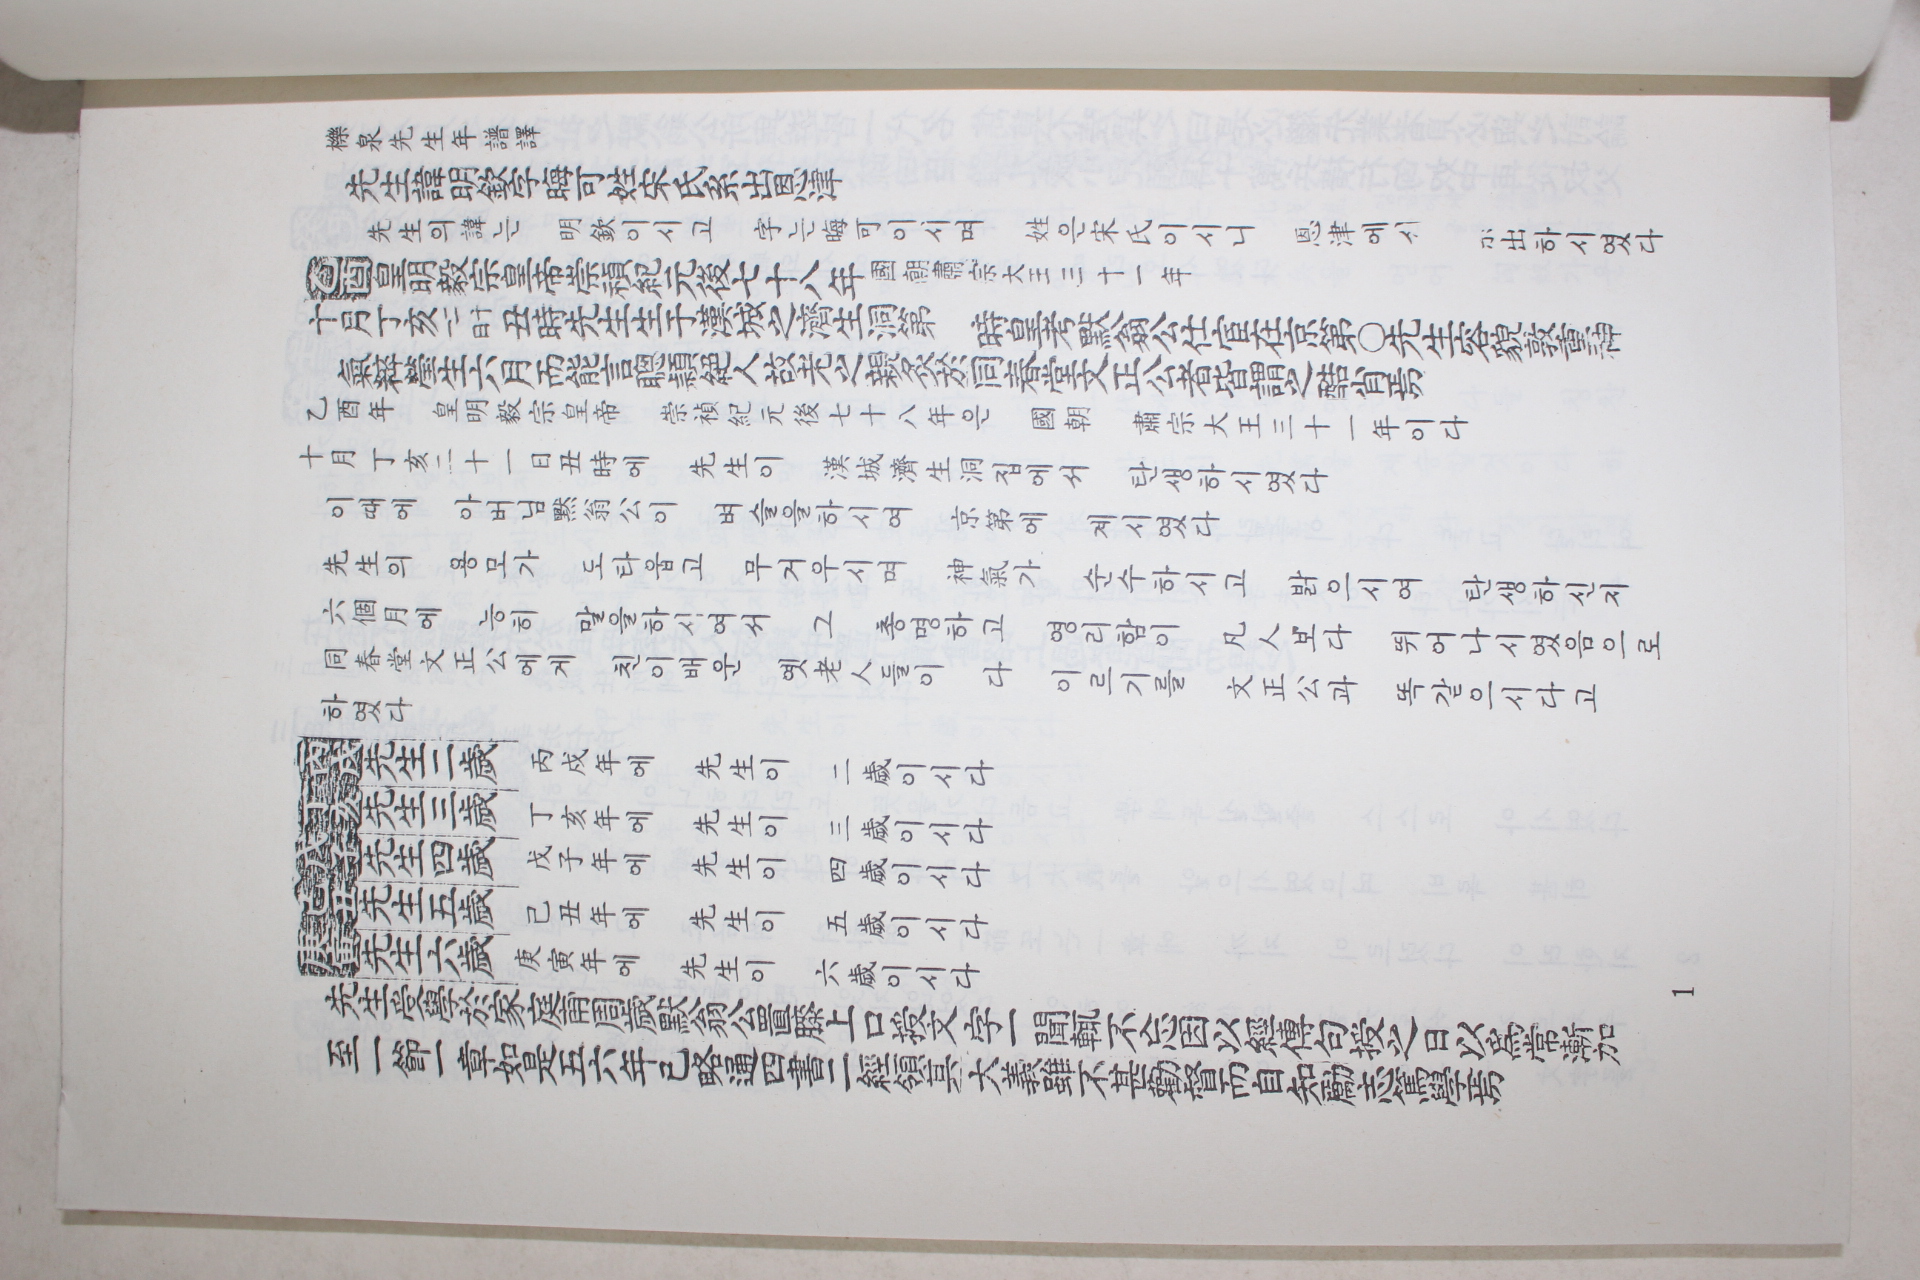 櫟泉先生年譜譯
先生諱明欽字晦可姓宋氏系出恩津
先生의諱는 明欽이시고 字는晦可이시며 姓은宋氏이시니 恩津에서 系出하시였다
乙酉皇明毅宗皇帝崇禎紀元後七十八年國朝肅宗大王三十一年
十月丁亥二十一日丑時先生生于漢城之濟生洞第 時皇考默翁公仕宦在京第○先生容貌敦重神
氣粹瑩生六月而能言聰頴絕人故老之親炙於同春堂文正公者皆謂之酷肖焉
乙酉年 皇明毅宗皇帝 崇禎紀元後七十八年은 國朝 肅宗大王三十一年이다
十月丁亥二十一日丑時에 先生이 漢城濟生洞집에서 탄생하시였다
이때에 아버님默翁公이 벼슬을하시여 京第에 계시였다
先生의 용모가 도타웁고 무거우시며 神氣가 순수하시고 밝으시여 탄생하신지
六個月에 능히 말을하시여서 그 총명하고 영리함이 凡人보다 뛰어나시였음으로
同春堂文正公에게 친이배운 옛老人들이 다 이르기를 文正公과 똑같으시다고
하였다
丙戌先生二歲 丙戌年에 先生이 二歲이시다
丁亥先生三歲 丁亥年에 先生이 三歲이시다
戊子先生四歲 戊子年에 先生이 四歲이시다
己丑先生五歲 己丑年에 先生이 五歲이시다
庚寅先生六歲 庚寅年에 先生이 六歲이시다
先生受學於家庭甫周歲默翁公置膝上口授文字一聞輒不忘因以經傳句授之日以爲常漸加
至一節一章如是五六年已略通四書二經領其大義雖不甚勸督而自知勵志篤學焉
1